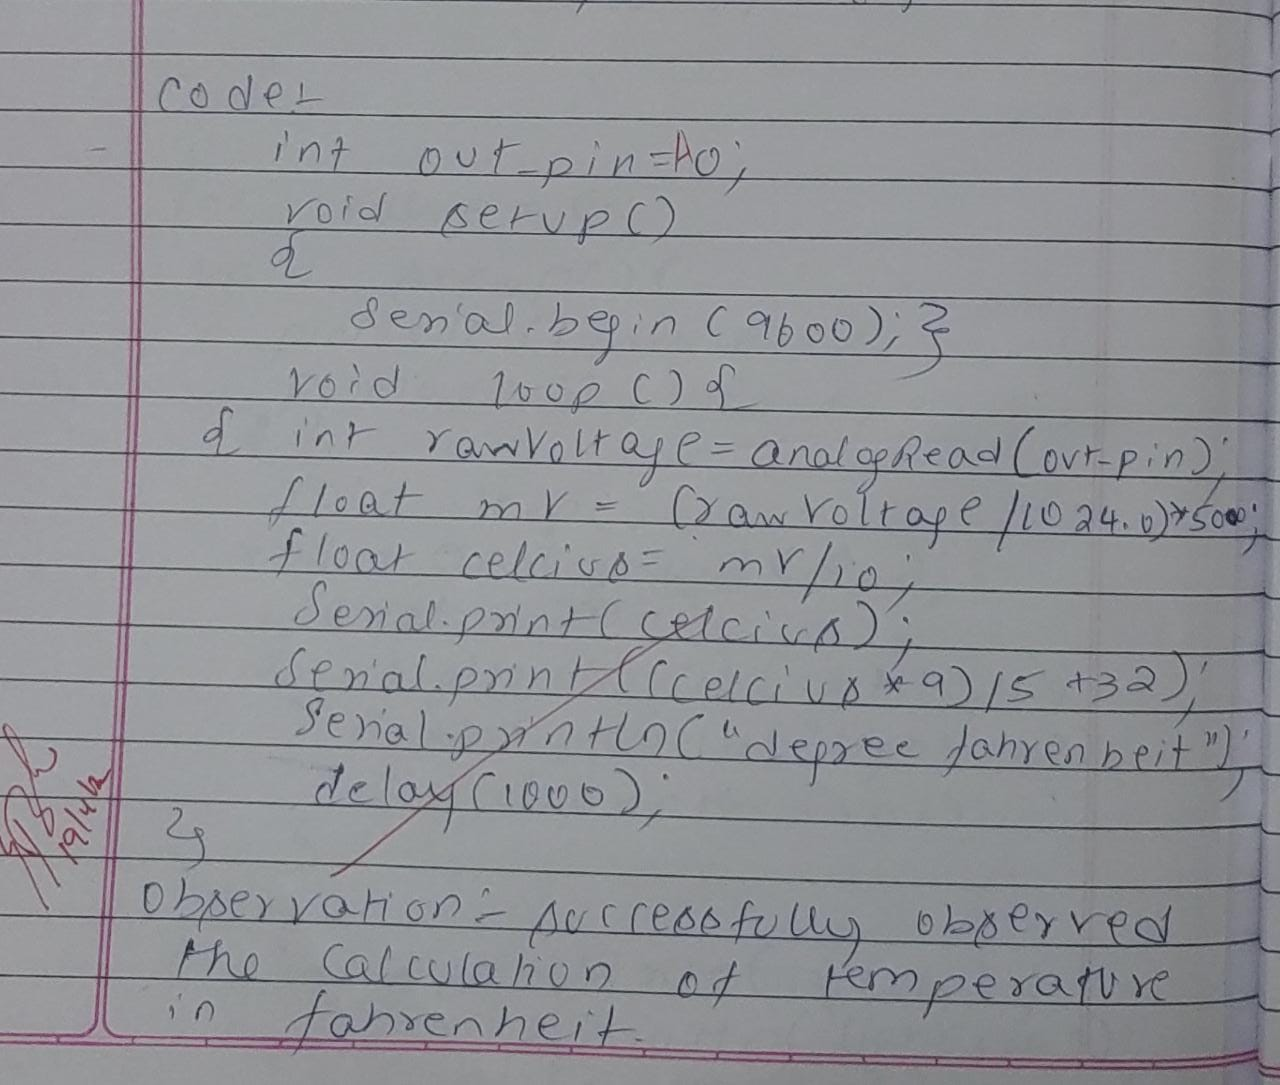 Code:-
int out_pin=A0;
void setup()
{
Serial.begin (9600);}
void loop () {
{ int rawVoltage = analogRead (out-pin);
float mv = (rawvoltage /1024.0)*5000;
float celcius = mv/10;
Serial.print (celcius);
Serial.print ((celcius * 9) /5 +32);
Serial.println ("degree fahrenheit");
delay (1000);
}
Observation:- successfully observed
the calculation of temperature
in fahrenheit.